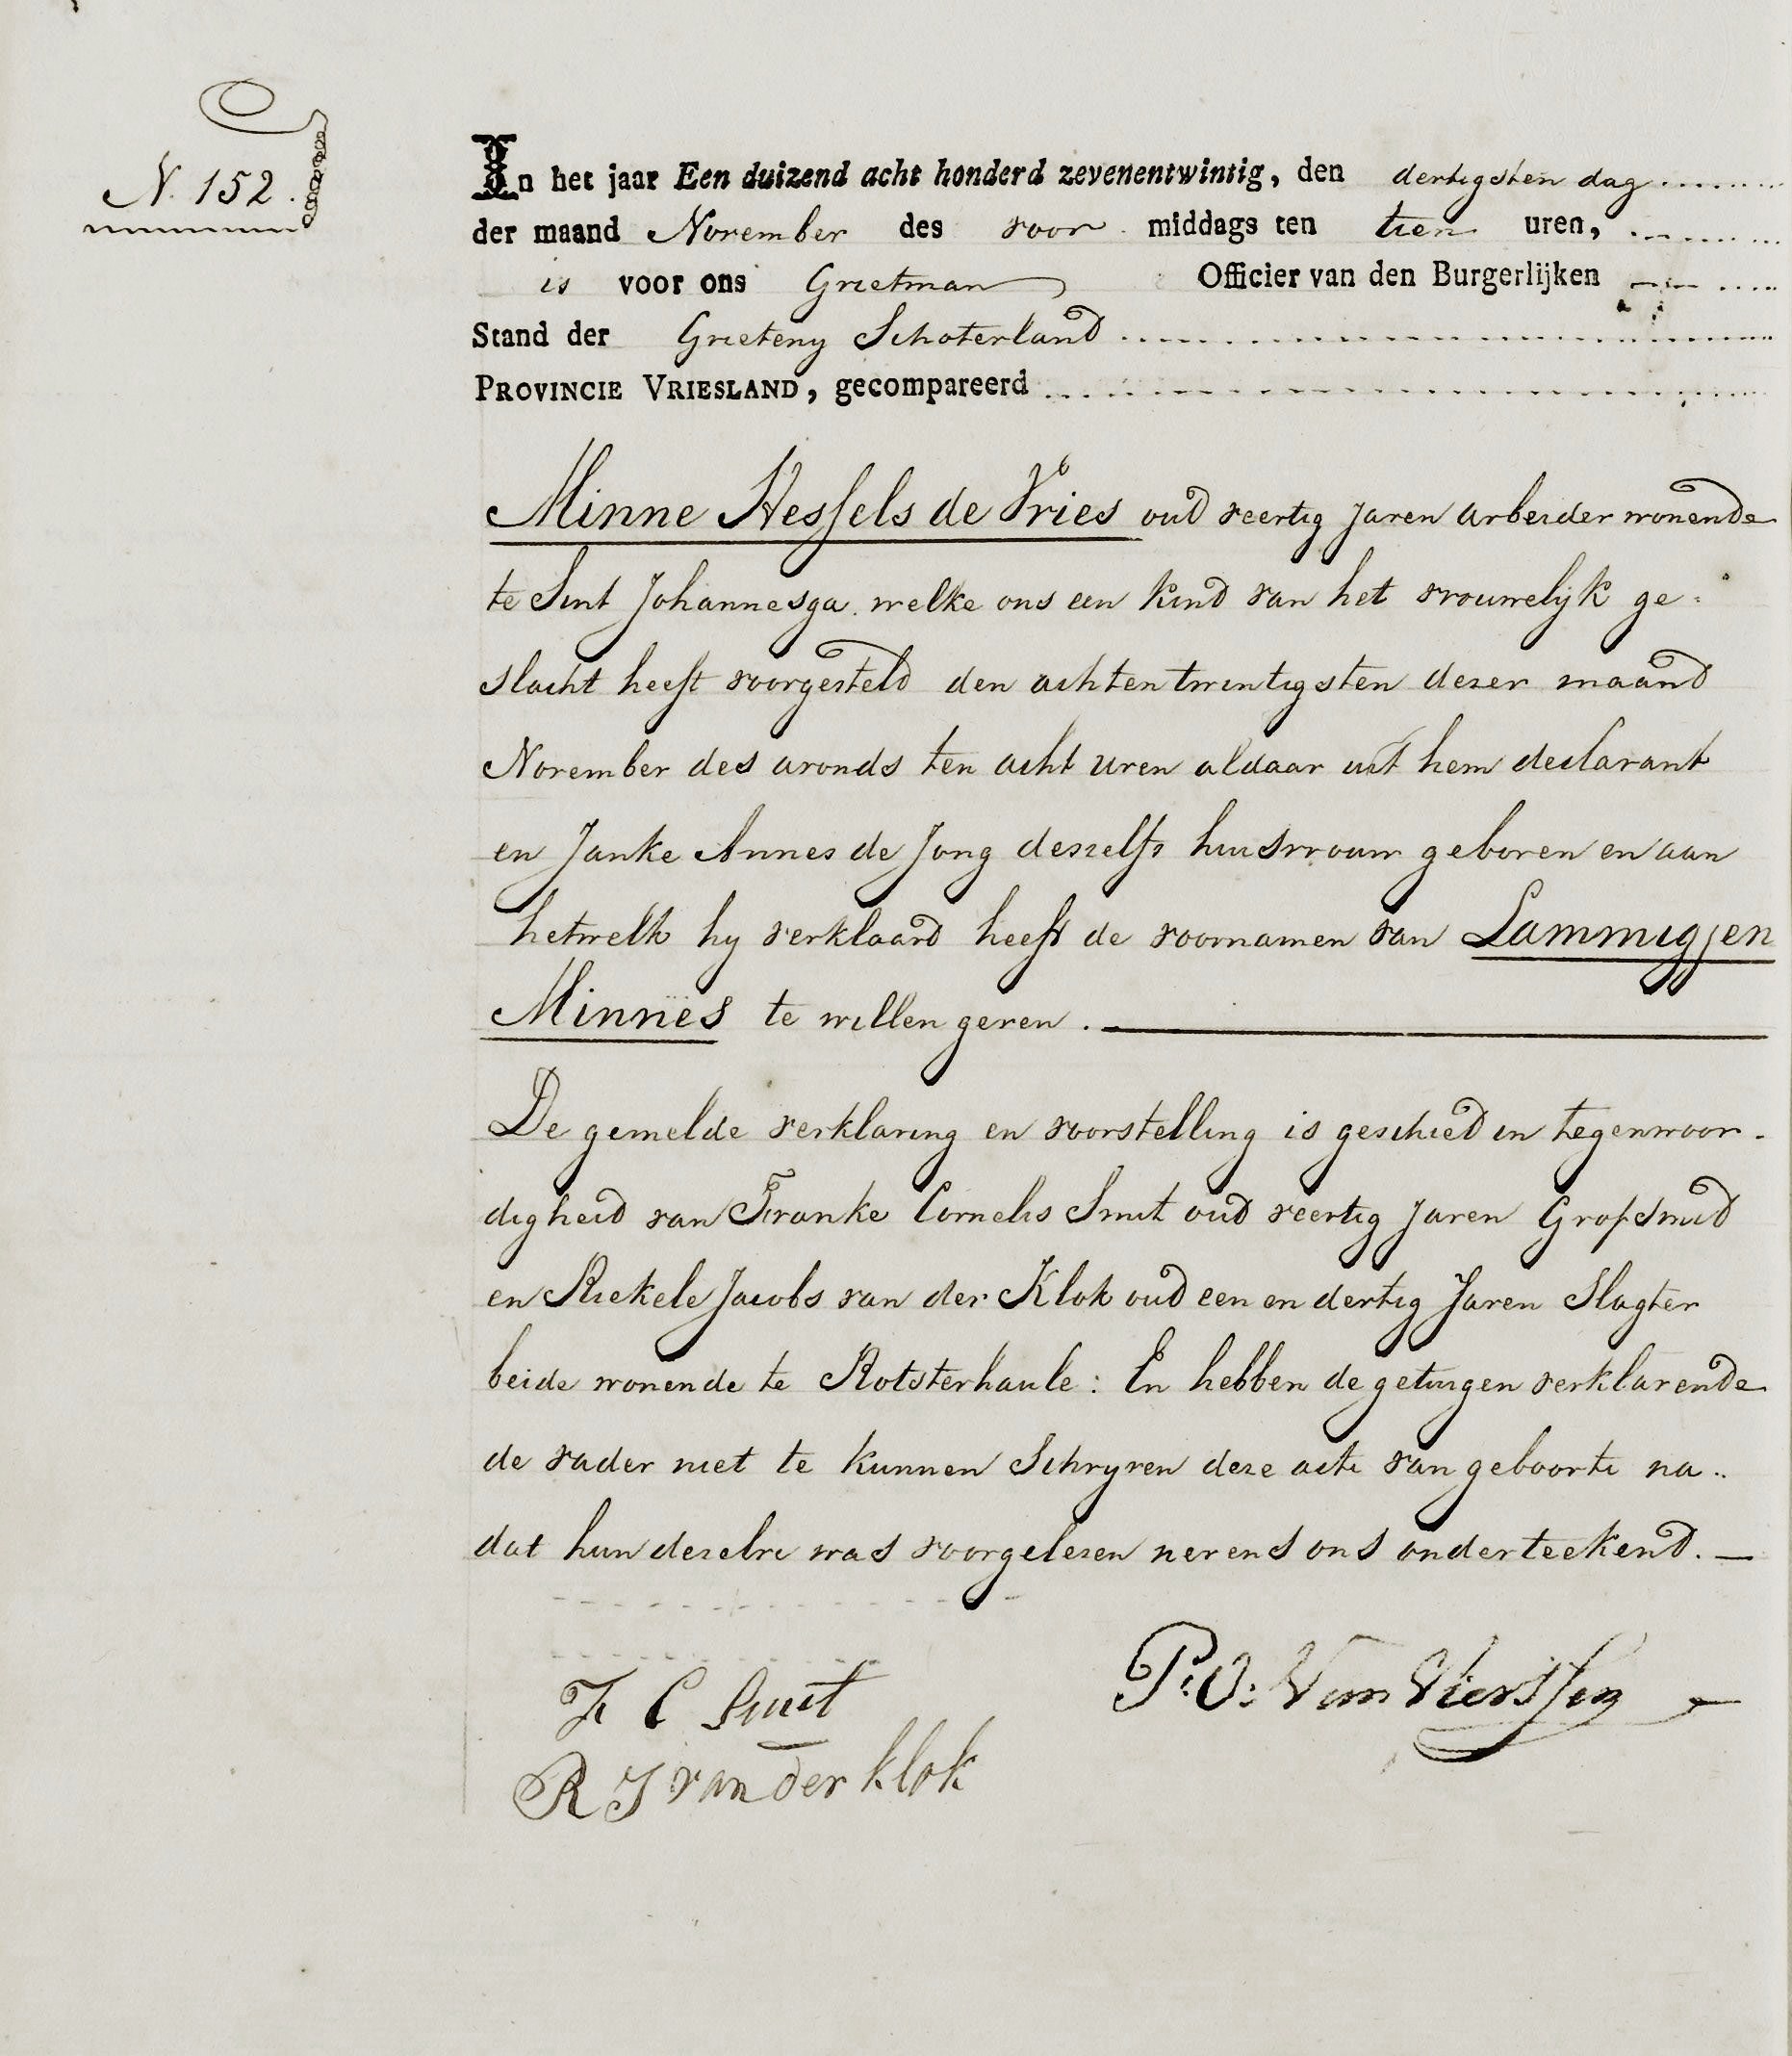 N. 152.
In het jaar Een duizend acht honderd zevenentwintig, den dertigsten dag
der maand November des voor middags ten tien uren,
is voor ons Grietman Officier van den Burgerlijken
Stand der Grieteny Schoterland
PROVINCIE VRIESLAND, gecompareerd
Minne Hessels de Vries oud veertig Jaren arbeider wonende
te Sint Johannesga welke ons een kind van het vrouwelyk ge-
slacht heeft voorgesteld den achtentwintigsten dezer maand
November des avonds ten acht uren aldaar uit hem declarant
en Janke Annes de Jong deszelfs huisvrouw geboren en aan
hetwelk hy verklaard heeft de voornamen van Lammigjen
Minnes te willen geven.
De gemelde verklaring en voorstelling is geschied in tegenwoor-
digheid van Franke Cornelis Smit oud veertig Jaren Grofsmid
en Riekele Jacobs van der Klok oud een en dertig Jaren Slagter
beide wonende te Rotsterhaule: En hebben de getuigen verklarende
de vader niet te kunnen Schryven deze acte van geboorte na-
dat hun dezelve was voorgelezen nevens ons onderteekend.
F C Smit
P: O: Van Vierssen
R J van der klok